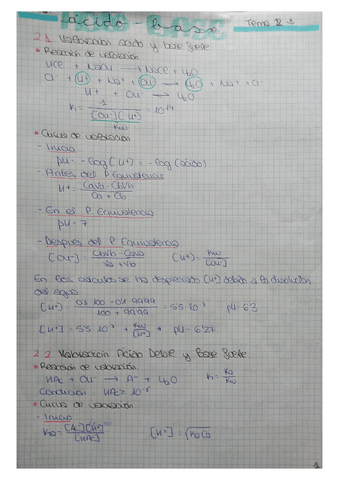 ácido-base
Tema 2
2.1. Valoración ácido y base fuerte
• Reacción de valoración
HCl + NaOH → NaCl + H₂O
Cl⁻ + H⁺ + Na⁺ + OH⁻ → H₂O + Na⁺ + Cl⁻
H⁺ + OH⁻ → H₂O
K = 1 / [OH⁻][H⁺] = 10¹⁴
Kw
• Curva de valoración
- Inicio
pH = -log [H⁺] = -log (ácido)
- Antes del P. Equivalencia
H⁺ = CaVa - CbVb / Va + Vb
- En el P. Equivalencia
pH = 7
- Después del P. Equivalencia
[OH⁻] = CbVb - CaVa / Va + Vb [H⁺] = Kw / [OH⁻]
En los cálculos se ha despreciado [H⁺] debido a la disolución
del agua
[H⁺] = 0'1 · 100 - 0'1 · 99'99 / 100 + 99'99 = pH = 6'3
[H⁺] = + Kw / [H⁺] pH = 6'27
2.2. Valoración Ácido Débil y Base Fuerte
• Reacción de valoración
HAc + OH⁻ → A⁻ + H₂O K = Ka / Kw
Condición HAc = 10⁻⁶
• Curva de valoración
- Inicio
Ka = [Ac⁻][H⁺] / [HAc] [H⁺] = √KaCa
1